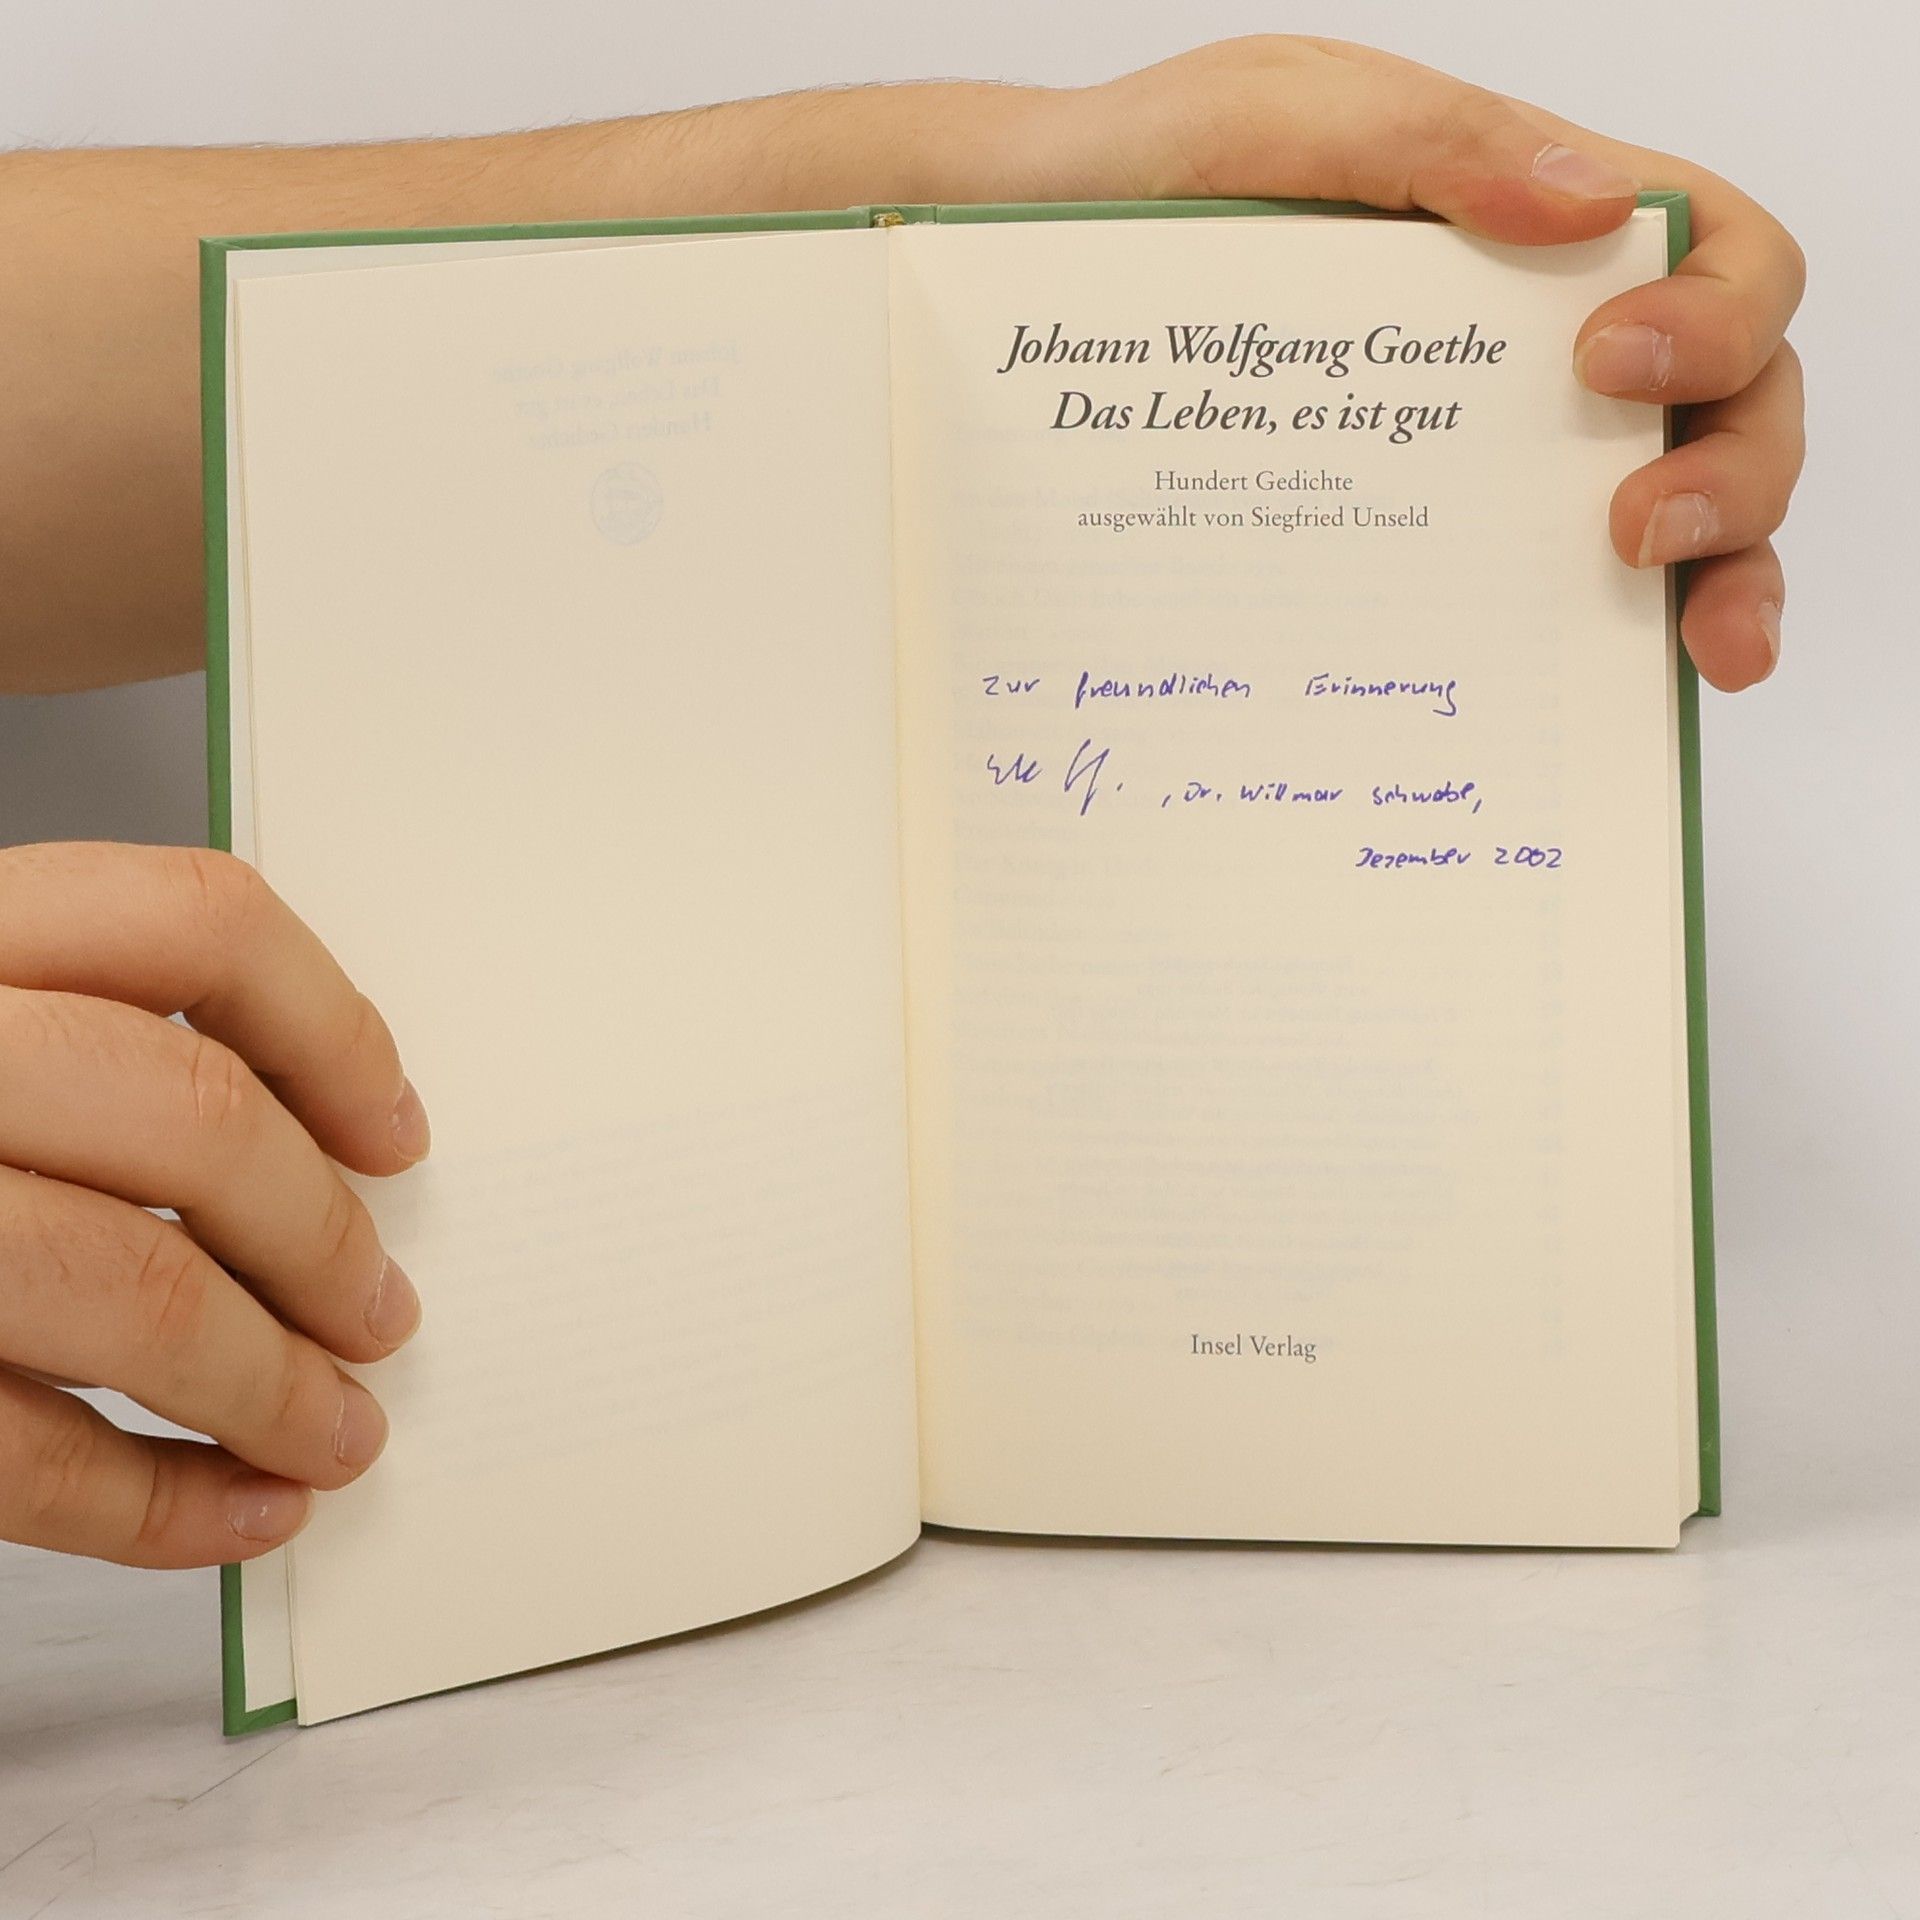 Johann Wolfgang Goethe
Das Leben, es ist gut
Hundert Gedichte
ausgewählt von Siegfried Unseld
Zur freundlichen Erinnerung
, Dr. Willmar Schwabe,
Dezember 2002
Insel Verlag